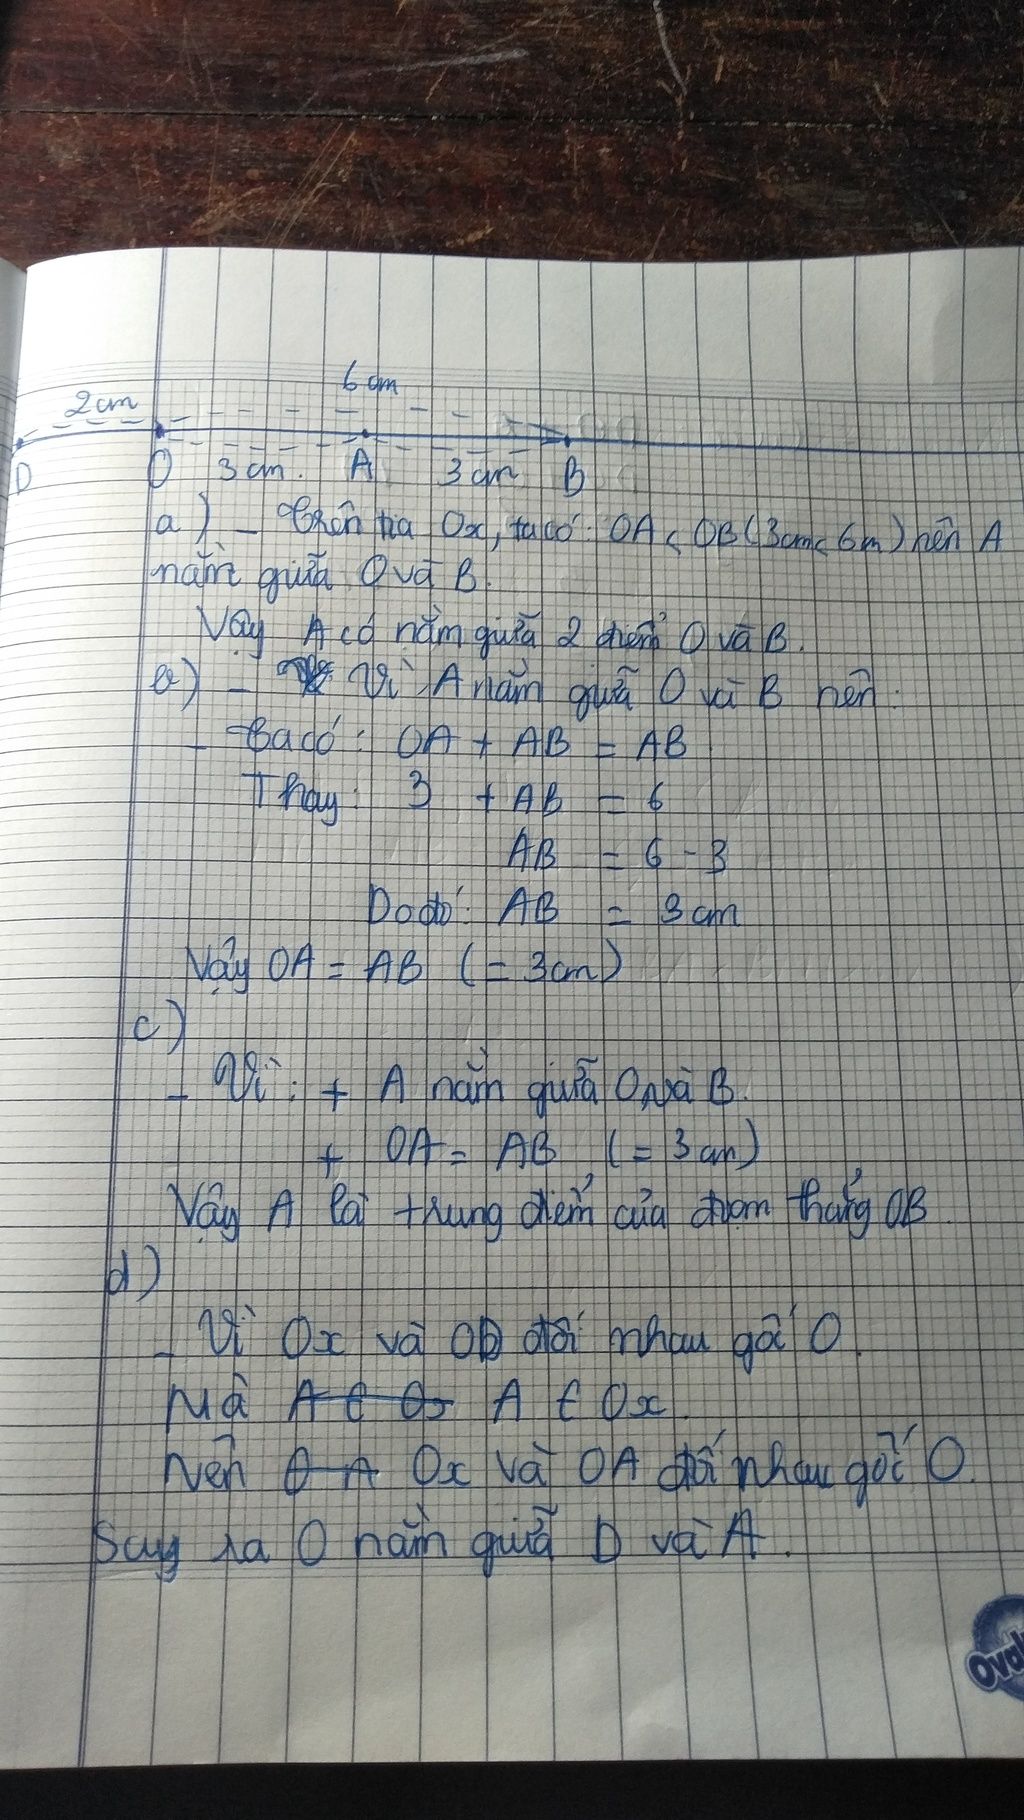 6cm
2cm
D O 3cm. A 3cm B
a) - Trên tia Ox, ta có: OA < OB (3cm < 6m) nên A
nằm giữa O và B.
Vậy A có nằm giữa 2 điểm O và B.
b) - Vì A nằm giữa O và B nên:
- Ta có: OA + AB = AB
Thay: 3 + AB = 6
AB = 6 - 3
Do đó: AB = 3cm
Vậy OA = AB (= 3cm)
c)
- Vì: + A nằm giữa O và B.
+ OA = AB (= 3cm)
Vậy A là trung điểm của đoạn thẳng OB.
d)
- Vì Ox và OD đối nhau gốc O.
Mà A ∈ Ox A ∈ Ox.
Nên O A Ox và OA đối nhau gốc O.
Suy ra O nằm giữa D và A.